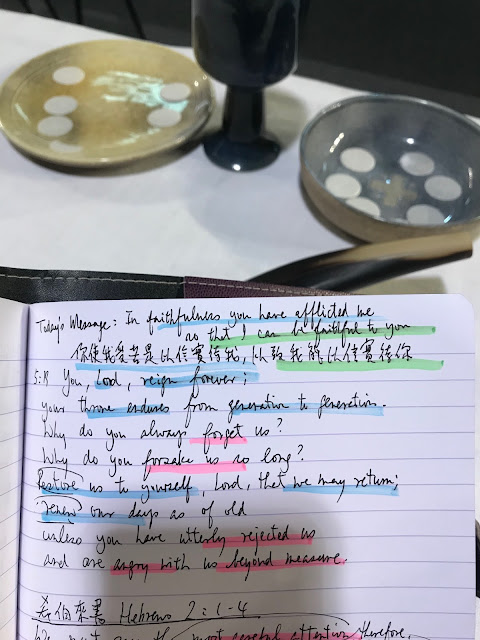 Today's Message: In faithfulness you have afflicted me
so that I can be faithful to you
你使我受苦是以信實待我,以致我能以信實待你
5:19 You, Lord, reign forever;
your throne endures from generation to generation.
Why do you always forget us?
Why do you forsake us so long?
Restore us to yourself, Lord, that we may return;
renew our days as of old
unless you have utterly rejected us
and are angry with us beyond measure.
希伯來書 Hebrews 2:1-4
We must pay the most careful attention, therefore,